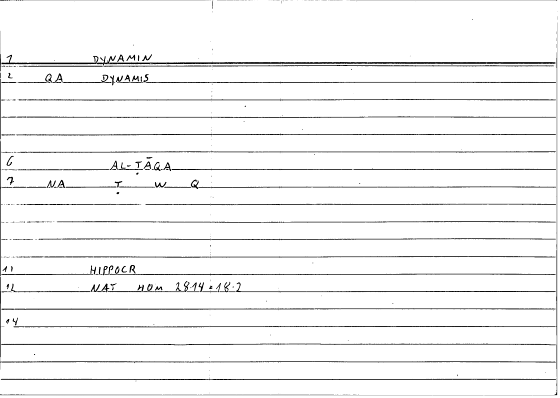 1 DYNAMIN
2 QA DYNAMIS
6 AL-ṬĀQA
7 NA Ṭ W Q
11 HIPPOCR
12 NAT HOM 2814=18.2
14